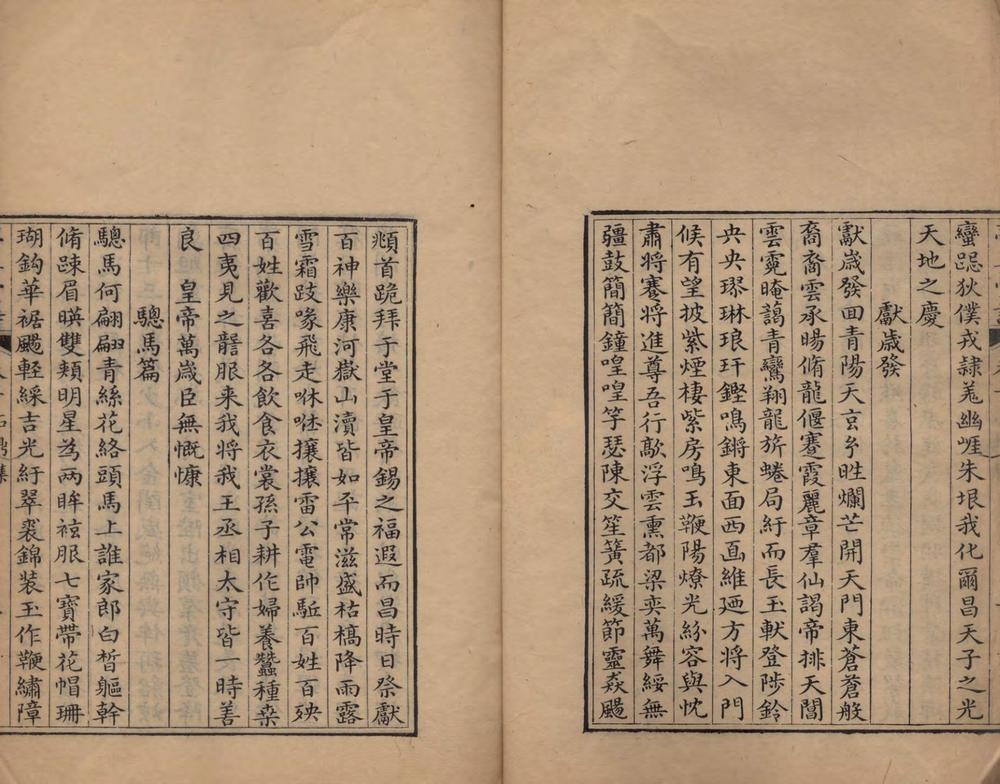 蠻跽狄僕戎隷羗幽崕朱垠我化爾昌天子之光
天地之慶
獻歲發
獻歲發囬青陽天㝎兮甠爛芒開天門東蒼蒼般
裔裔雲承暘脩龍偃蹇霞麗章羣仙謁帝排天閶
雲霓晻藹青鸞翔龍旂蜷局紆而長玉軑登陟鈴
央央璆琳琅玕鏗鳴鏘東面西面維廼方將入門
候有望披紫煙棲紫房鳴玉鞭陽燎光紛容與忱
肅將蹇將進尊吾行歊浮雲熏都梁奕萬舞綏無
疆鼓簡簡鐘喤喤竽瑟陳交笙簧疏緩節靈猋颺
頫首跪拜于堂于皇帝錫之福遐而昌時日祭獻
百神樂康河嶽山瀆皆如平常滋盛枯槁降雨露
雪霜跂喙飛走咻咻攘攘雷公電帥駈百姓百殃
百姓歡喜各各飲食衣裳孫子耕作婦養蠶種桒
四夷見之讋服来我將我王丞相太守皆一時善
良　皇帝萬歲臣無慨慷
驄馬篇
驄馬何翩翩青絲花絡頭馬上誰家郎白皙軀幹
脩踈眉暎雙頰明星為兩眸袨服七寶帶花帽珊
瑚鈎華裾颺輕綵吉光紆翠裘錦装玉作鞭繡障